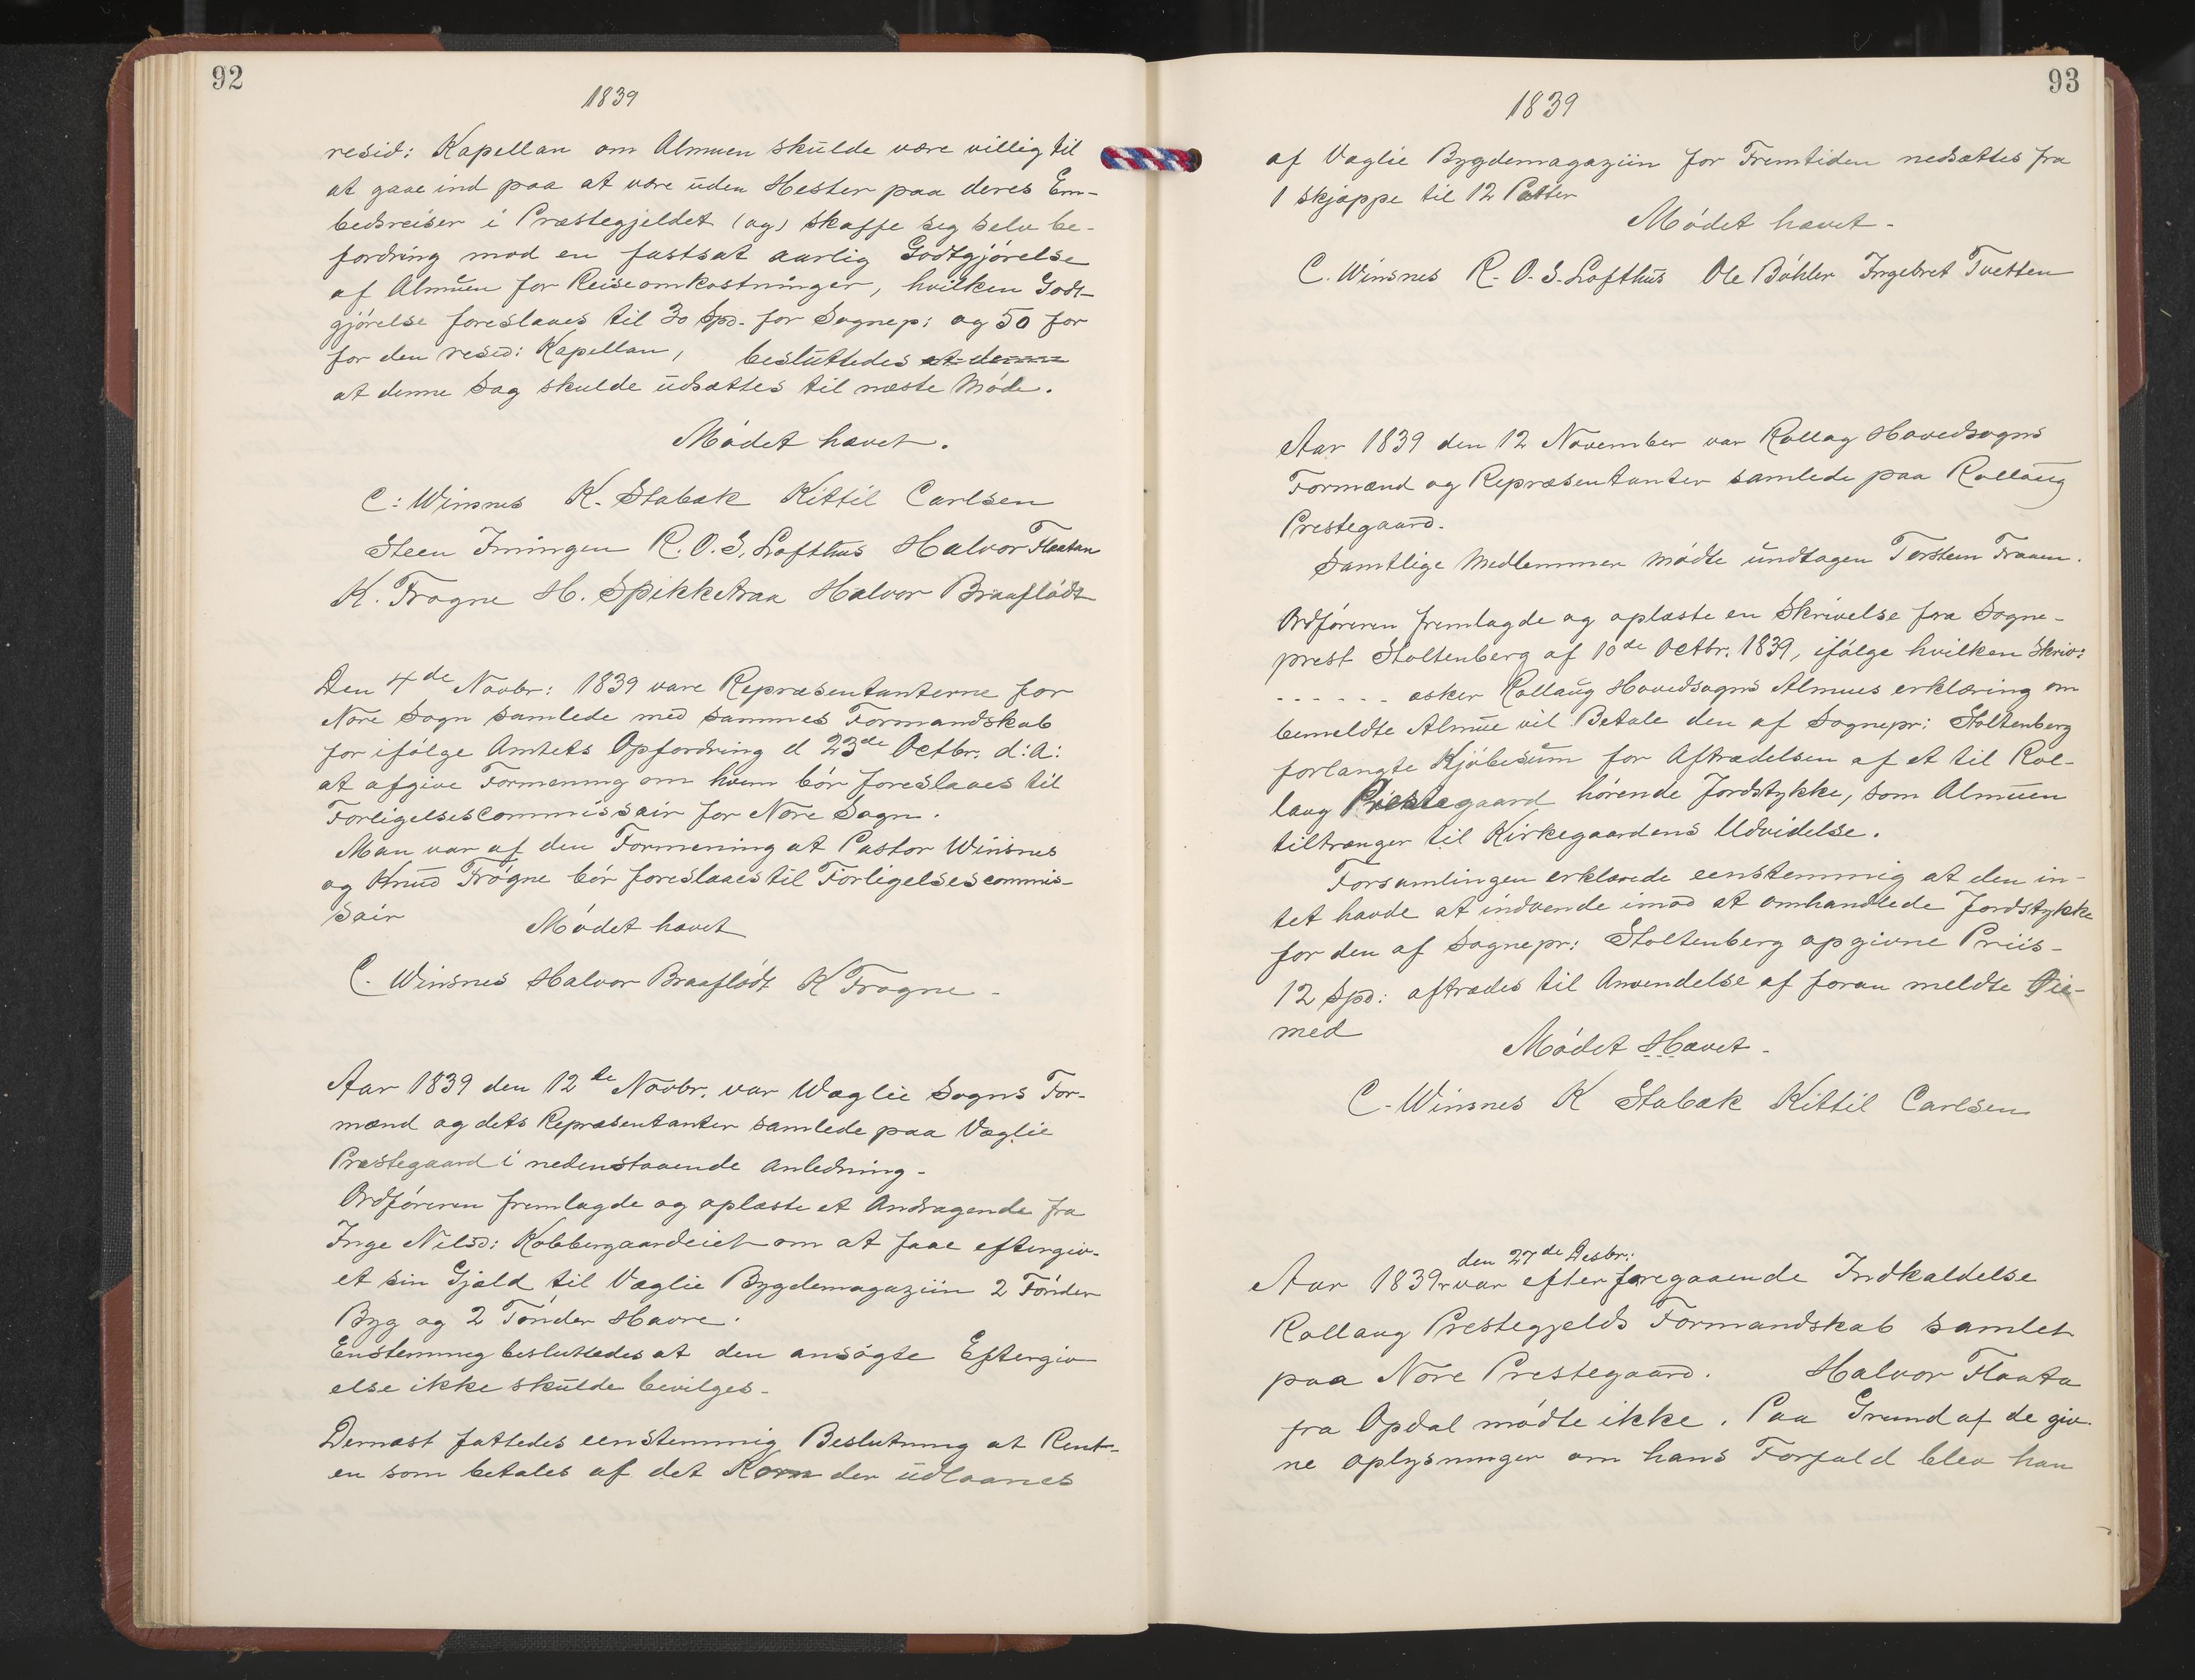 92
1839
resid: Kapellan om Almuen skulde være villig til
at gaae ind paa at være uden Hester paa deres Em-
bedsreiser i Præstegjeldet (og) skaffe seg selv be-
fordring mod en fastsat aarlig Godtgjörelse
af Almuen for Reiseomkostninger, hvilken Godt-
gjörelse foreslaaes til 30 Spd. for Sognep: og 50 for
for den resid: Kapellan, besluttedes at denne
at denne Sag skulde udsættes til næste Möde.
Mödet hævet.
C: Winsnes K. Stabæk Kittil Carlsen
Steen Imingen R. O. S. Lofthus Halvor Flaatan
K. Frogne H. Spikketraa Halvor Braaflödt
Den 4de Novbr: 1839 vare Repræsentanterne for
Nore Sogn samlede med sammes Formandskab
for ifölge Amtets Opfordring d 23de Octbr. d:A:
at afgive Formening om hvem bör foreslaaes til
Forligelsescommissair for Nore Sogn.
Man var af den Formening at Pastor Winsnes
og Knud Frögne bör foreslaaes til Forligelsescommis-
sair
Mödet hævet
C. Winsnes Halvor Braaflödt K Frogne -
Aar 1839 den 12te Novbr. var Wæglie Sogns For-
mænd og dets Repræsentanter samlede paa Væglie
Præstegaard i nedenstaaende Anledning -
Ordföreren fremlagde og oplæste et Andragende fra
Inge Nilsd: Kobbergaardeiet om at faae eftergiv-
et sin Gjæld til Væglie Bygdemagaziin 2 Tönder
Byg og 2 Tönder Havre.
Enstemmig besluttedes at den ansögte Eftergiv
else ikke skulde bevilges -
Dernæst fattedes eenstemmig Beslutning at Rent-
en som betales af det Korn der udlaanes
93
1839
af Væglie Bygdemagaziin for Fremtiden nedsættes fra
1 skjæppe til 12 Potter
Mödet hævet -
C. Winsnes R. O. S. Lofthus Ole Böhler Ingebret Tvetten
Aar 1839 den 12 November var Rollag Hovedsogns
Formænd og Repræsentanter samlede paa Rollaug
Prestegaard.
Samtlige Medlemmer mödte undtagen Torsten Fraaen.
Ordföreren fremlagde og oplæste en Skrivelse fra Sogne-
prest Stoltenberg af 10de Octbr. 1839, ifölge hvilken Skriv:
- - - - - - æsker Rollaug Hovedsogns Almues erklæring om
bemeldte Almue vil Betale den af Sognepr: Stoltenberg
forlangte Kjöbesum for Aftrædelsen af et til Rol-
laug Prestegaard hörende Jordstykke, som Almuen
tiltrænger til Kirkegaardens Udvidelse.
Forsamlingen erklærede eenstemmig at den in-
tet havde at indvende imod at omhandlede Jordstykke
for den af Sognepr: Stoltenberg opgivne Priis -
12 Spd: aftrædes til Anvendelse af foran meldte Öie-
med
Mödet Hævet -
C - Winsnes K Stabæk Kittil Carlsen
den 27de Desbr:
Aar 1839 var efter foregaaende Indkaldelse
Rollaug Prestegjelds Formandskab samlet
paa Nore Prestegaard. Halvor Flaata
fra Opdal mödte ikke. Paa Grund af de giv-
ne oplysninger om hans Forfald blev han